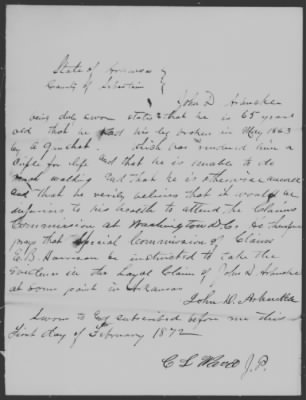 State of Arkansas
County of Sebastian
John D
being duly sworn states that he is 65 years
old that he had his leg broken in May 1863
by a gunshot which has rendered him a
for life and that he is unable to do
much walking and that he is otherwise
and that he verily believes that it would be
injurious to his health to attend the Claims
Commission at Washington D.C. he therefore
prays that Special Commission of Claims
E. B. Harrison be instructed to take the
evidence in the Loyal Claim of John D
at some point in Arkansas
John D.
Sworn to & subscribed before me this
first day of February 1872
C L J.P.